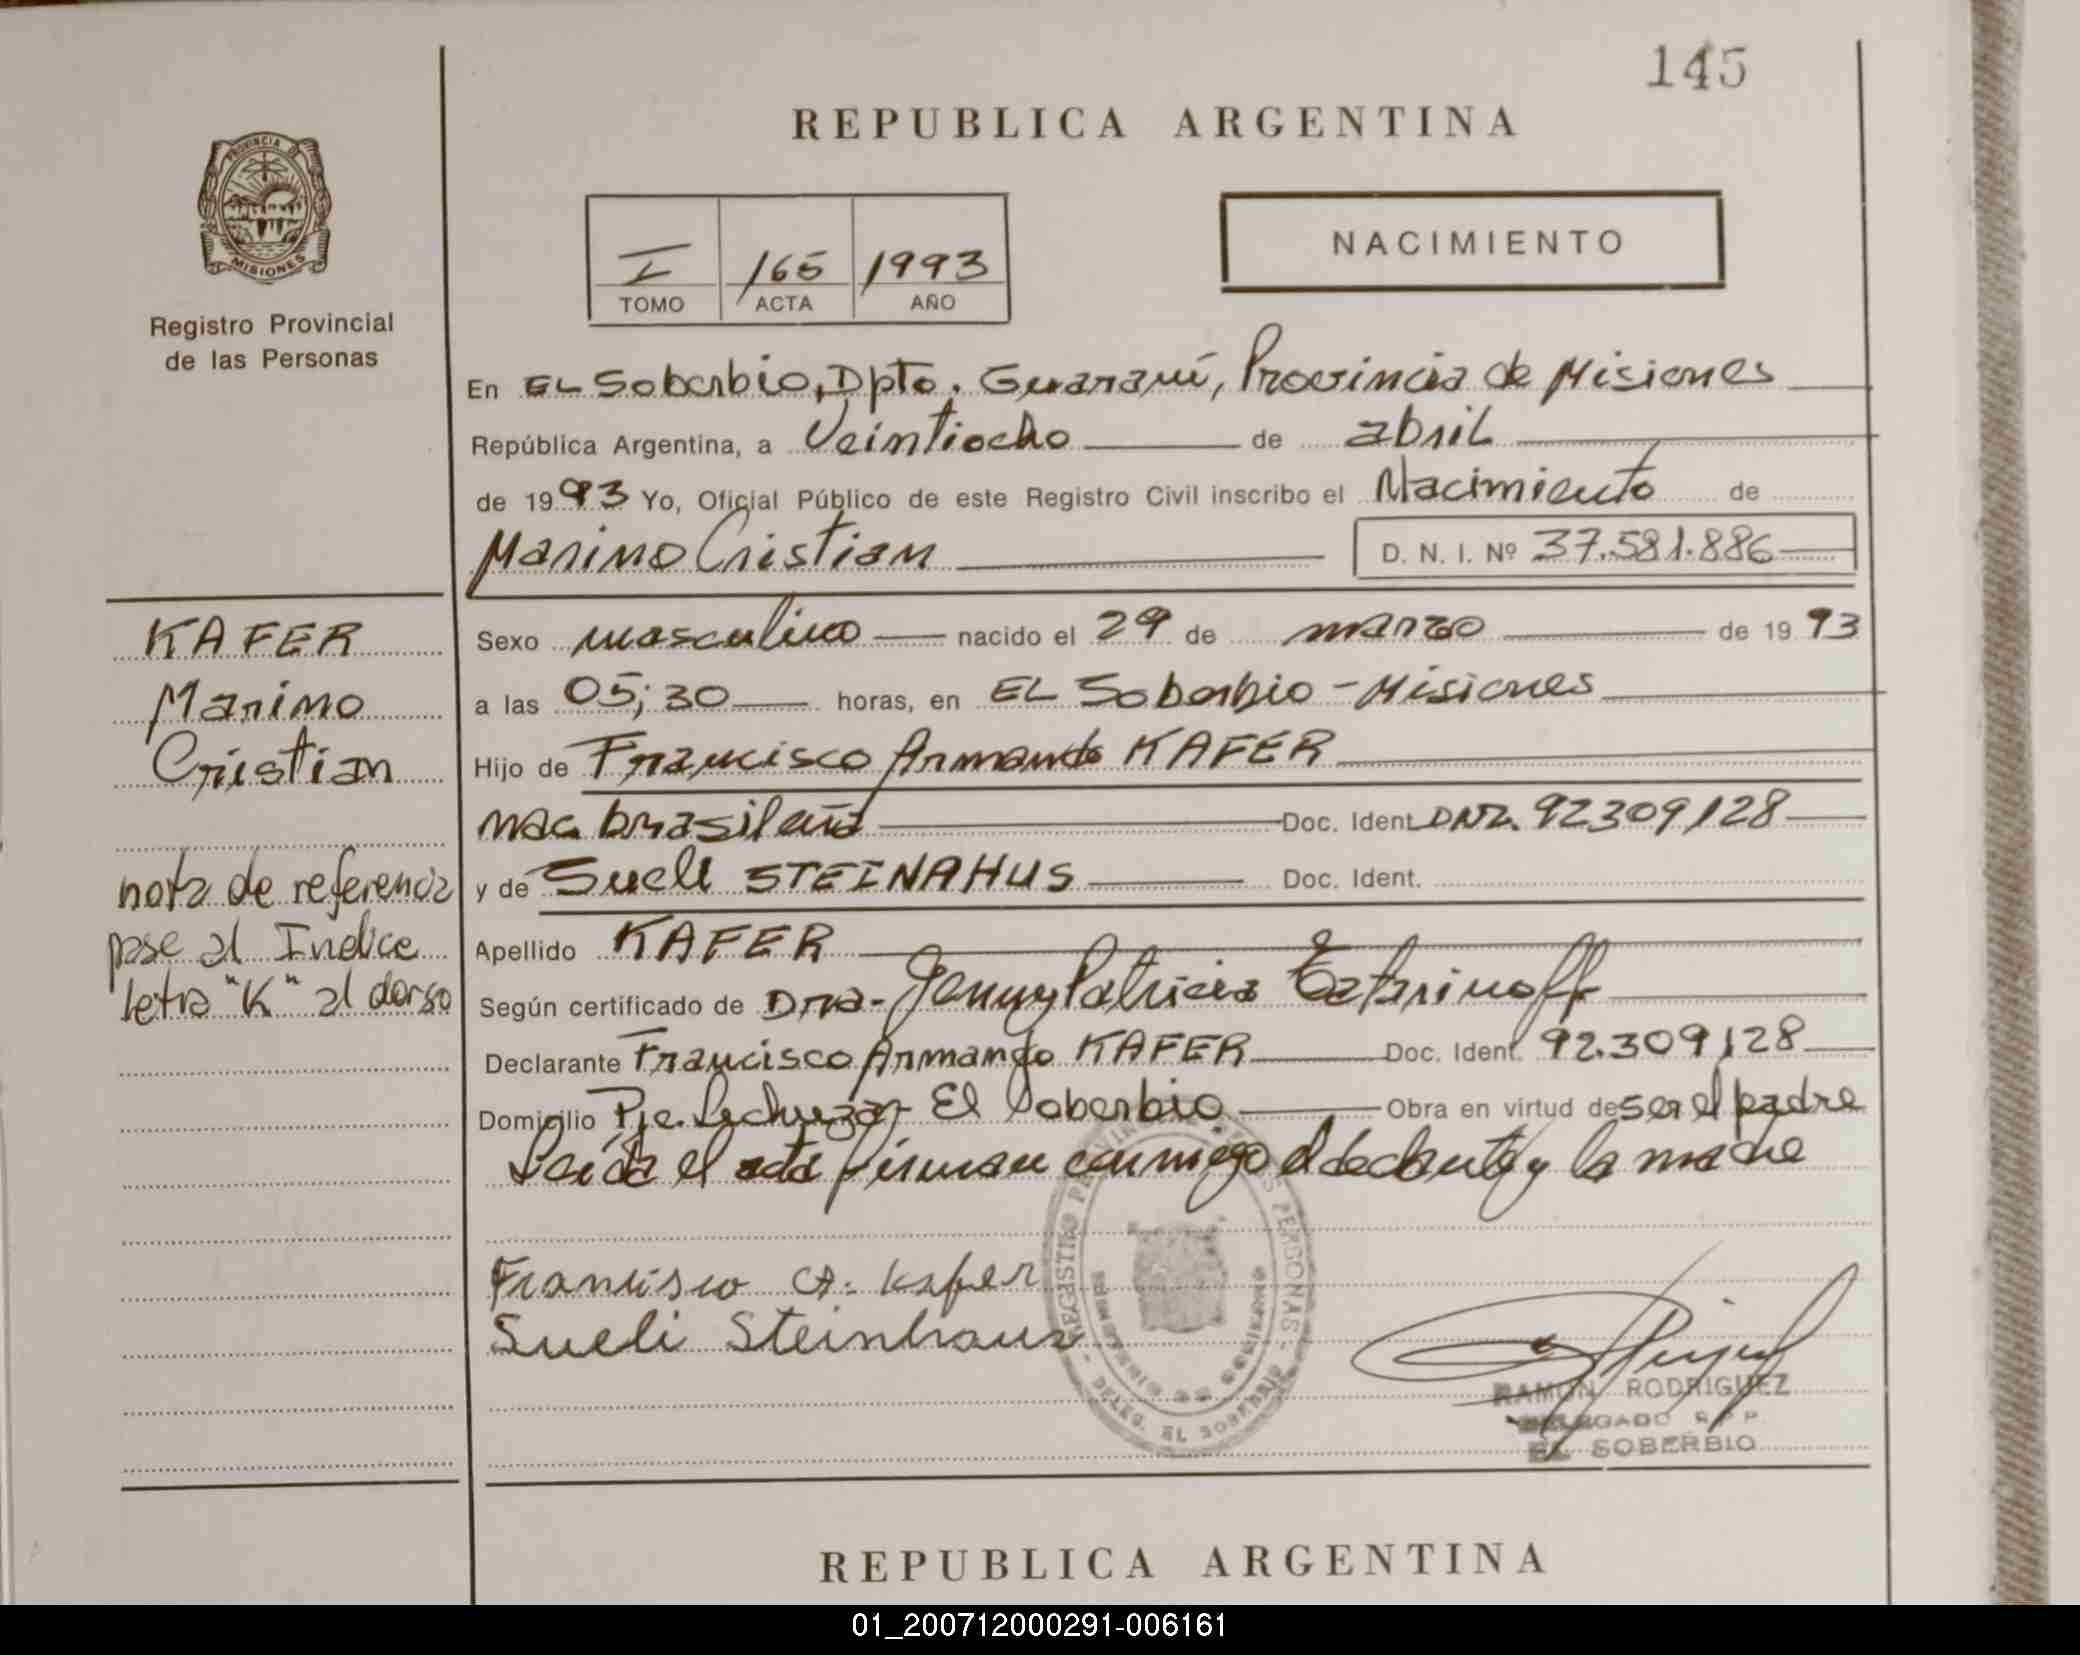 145
REPUBLICA ARGENTINA
PROVINCIA DE
MISIONES
Registro Provincial
de las Personas
I 165 1993
TOMO ACTA AÑO
NACIMIENTO
En EL Soberbio, Dpto. Guaraní, Provincia de Misiones
República Argentina, a Veintiocho de abril
de 1993 Yo, Oficial Público de este Registro Civil inscribo el Nacimiento de
Marino Cristian D. N. I. Nº 37.581.886
KAFER
Marino
Cristian
nota de referencia
pase al Indice
letra "K" al dorso
Sexo masculino nacido el 29 de marzo de 1993
a las 05;30 horas, en EL Soberbio - Misiones
Hijo de Francisco Armando KAFER
nac brasileña Doc. Ident. DNI. 92309128
y de Sueli STEINAHUS Doc. Ident.
Apellido KAFER
Según certificado de Dra- Jenny Patricia
Declarante Francisco Armando KAFER Doc. Ident. 92.309128
Domicilio Pje. Lechuza - El Soberbio Obra en virtud de ser el padre
Leída el acta firman conmigo el declante y la madre
Francisco A. Kafer
Sueli Steinhaus
REGISTRO PROVINCIAL DE LAS PERSONAS
MINISTERIO DE GOBIERNO
DELEG. EL SOBERBIO
RAMON RODRIGUEZ
DELEGADO R P P
EL SOBERBIO
REPUBLICA ARGENTINA
01_200712000291-006161